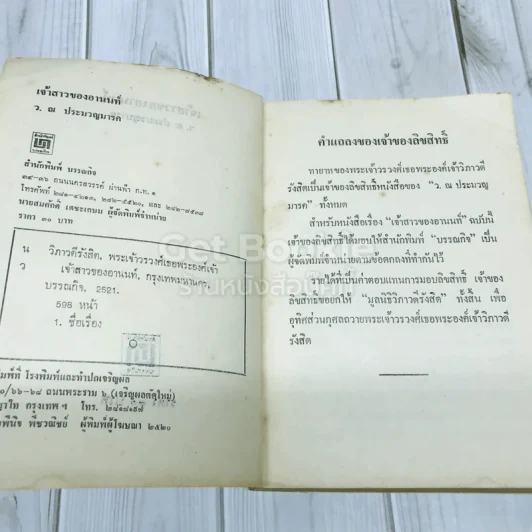 เจ้าสาวของอานนท์
ว. ณ ประมวญมารค
สำนักพิมพ์ บรรณกิจ
๓๔-๓๖ ถนนนครสวรรค์ ผ่านฟ้า ก.ท. ๑
โทรศัพท์ ๒๘๑-๔๒๑๓, ๒๘๒-๕๕๒๐, และ ๒๘๒-๙๕๓๘
นายสมศักดิ์ เตชะเกษม ผู้จัดพิมพ์จำหน่าย
ราคา ๓๐ บาท
น วิภาวดีรังสิต, พระเจ้าวรวงศ์เธอพระองค์เจ้า
ว เจ้าสาวของอานนท์, กรุงเทพมหานคร,
บรรณกิจ, 2521.
598 หน้า
1. ชื่อเรื่อง
พิมพ์ที่ โรงพิมพ์และทำปกเจริญผล
๐/๖๖-๖๘ ถนนพระราม ๖ (เจริญผลตัดใหม่)
กรุงเทพฯ โทร. ๒๘๑๘๑๕๗
พีชวณิชย์ ผู้พิมพ์ผู้โฆษณา ๒๕๒๐
คำแถลงของเจ้าของลิขสิทธิ์
ทายาทของพระเจ้าวรวงศ์เธอพระองค์เจ้าวิภาวดี
รังสิตเป็นเจ้าของลิขสิทธิ์หนังสือของ "ว. ณ ประมวญ
มารค" ทั้งหมด
สำหรับหนังสือเรื่อง "เจ้าสาวของอานนท์" ฉบับนี้
เจ้าของลิขสิทธิ์ได้มอบให้สำนักพิมพ์ "บรรณกิจ" เป็น
ผู้จัดพิมพ์จำหน่ายตามข้อตกลงที่ทำกันไว้
รายได้ที่เป็นค่าตอบแทนการมอบลิขสิทธิ์ เจ้าของ
ลิขสิทธิ์ขอยกให้ "มูลนิธิวิภาวดีรังสิต" ทั้งสิ้น เพื่อ
อุทิศส่วนกุศลถวายพระเจ้าวรวงศ์เธอพระองค์เจ้าวิภาวดี
รังสิต
Get Bookie
ร้านหนังสือ